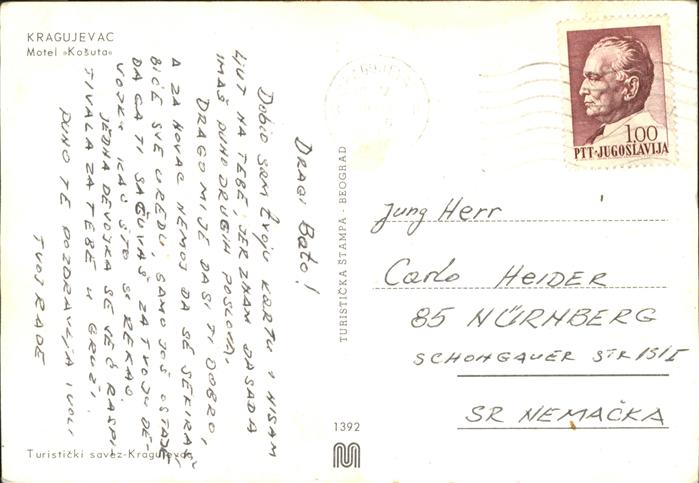 KRAGUJEVAC
Motel »Košuta«
DRAGI BATO!
DOBIO SAM TVOJU KARTU I NISAM
LJUT NA TEBE, JER ZNAM DA SADA
IMAŠ PUNO DRUGIH POSLOVA.
DRAGO MI JE DA SI TI DOBRO,
A ZA NOVAC NEMOJ DA SE SEKIRAŠ
BIĆE SVE U REDU, SAMO JOŠ OSTAJE
DA GA TI SAČUVAŠ ZA TVOJU DE-
VOJKU KAO ŠTO SI REKAO.
JEDNA DEVOJKA SE VEĆ RASPI
TIVALA ZA TEBE U GRUŽI.
PUNO TE POZDRAVLJA I VOLI
TVOJ RADE
Turistički savez-Kragujevac
TURISTIČKA ŠTAMPA - BEOGRAD
1392
1.00
PTT·JUGOSLAVIJA
Jung Herr
Carlo HEIDER
85 NÜRNBERG
SCHONGAUER STR 15/I
SR NEMAČKA